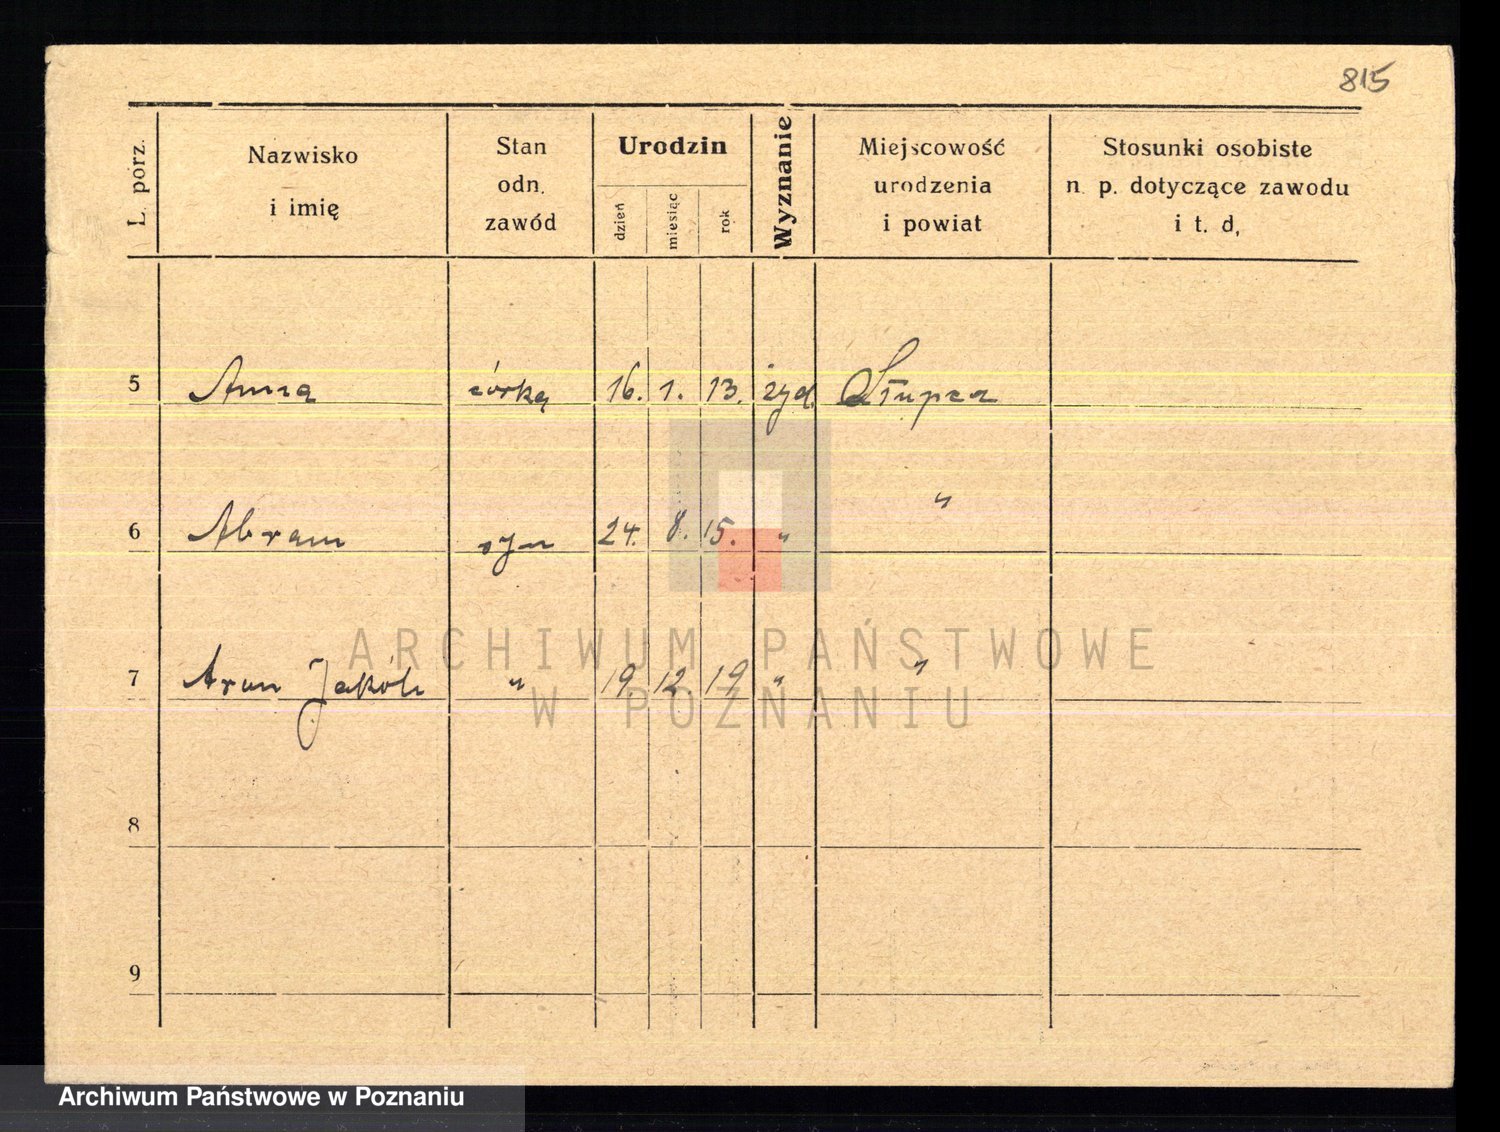 815
L. porz.
Nazwisko
i imię
Stan
odn.
zawód
Urodzin
dzień
miesiąc
rok
Wyznanie
Miejscowość
urodzenia
i powiat
Stosunki osobiste
n. p. dotyczące zawodu
i t. d,
5 Anna córka 16. 1. 13. żyd. Słupca
6 Abram syn 24. 8. 15. " "
7 Aron Jakób " 19. 12. 19 " "
8
9
ARCHIWUM PAŃSTWOWE
W POZNANIU
Archiwum Państwowe w Poznaniu